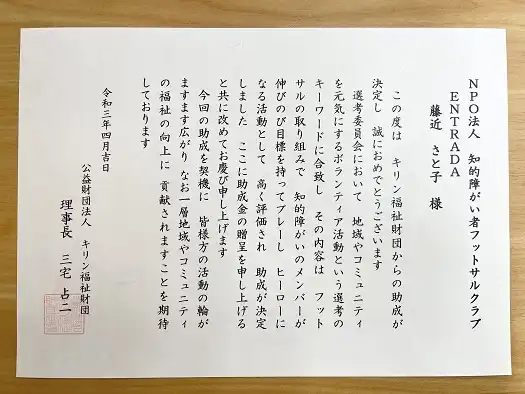 NPO法人 知的障がい者フットサルクラブ
ENTRADA
藤近 さと子 様
この度は キリン福祉財団からの助成が
決定し 誠におめでとうございます
選考委員会において 地域やコミュニティ
を元気にするボランティア活動という選考の
キーワードに合致し その内容は フット
サルの取り組みで 知的障がいのメンバーが
伸びのび目標を持ってプレーし ヒーローに
なる活動として 高く評価され 助成が決定
しました ここに助成金の贈呈を申し上げる
と共に改めてお慶び申し上げます
今回の助成を契機に 皆様方の活動の輪が
ますます広がり なお一層地域やコミュニティ
の福祉の向上に 貢献されますことを期待
しております
令和三年四月吉日
公益財団法人 キリン福祉財団
理事長 三宅 占二